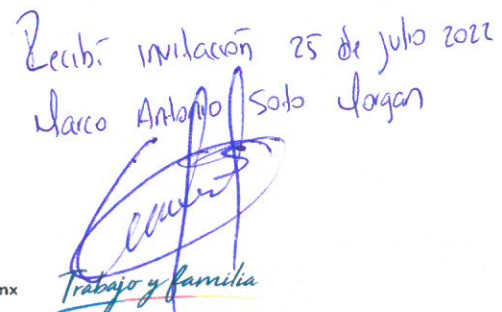 Recibí invitación 25 de julio 2022
Marco Antonio Soto Morgan
mx Trabajo y familia